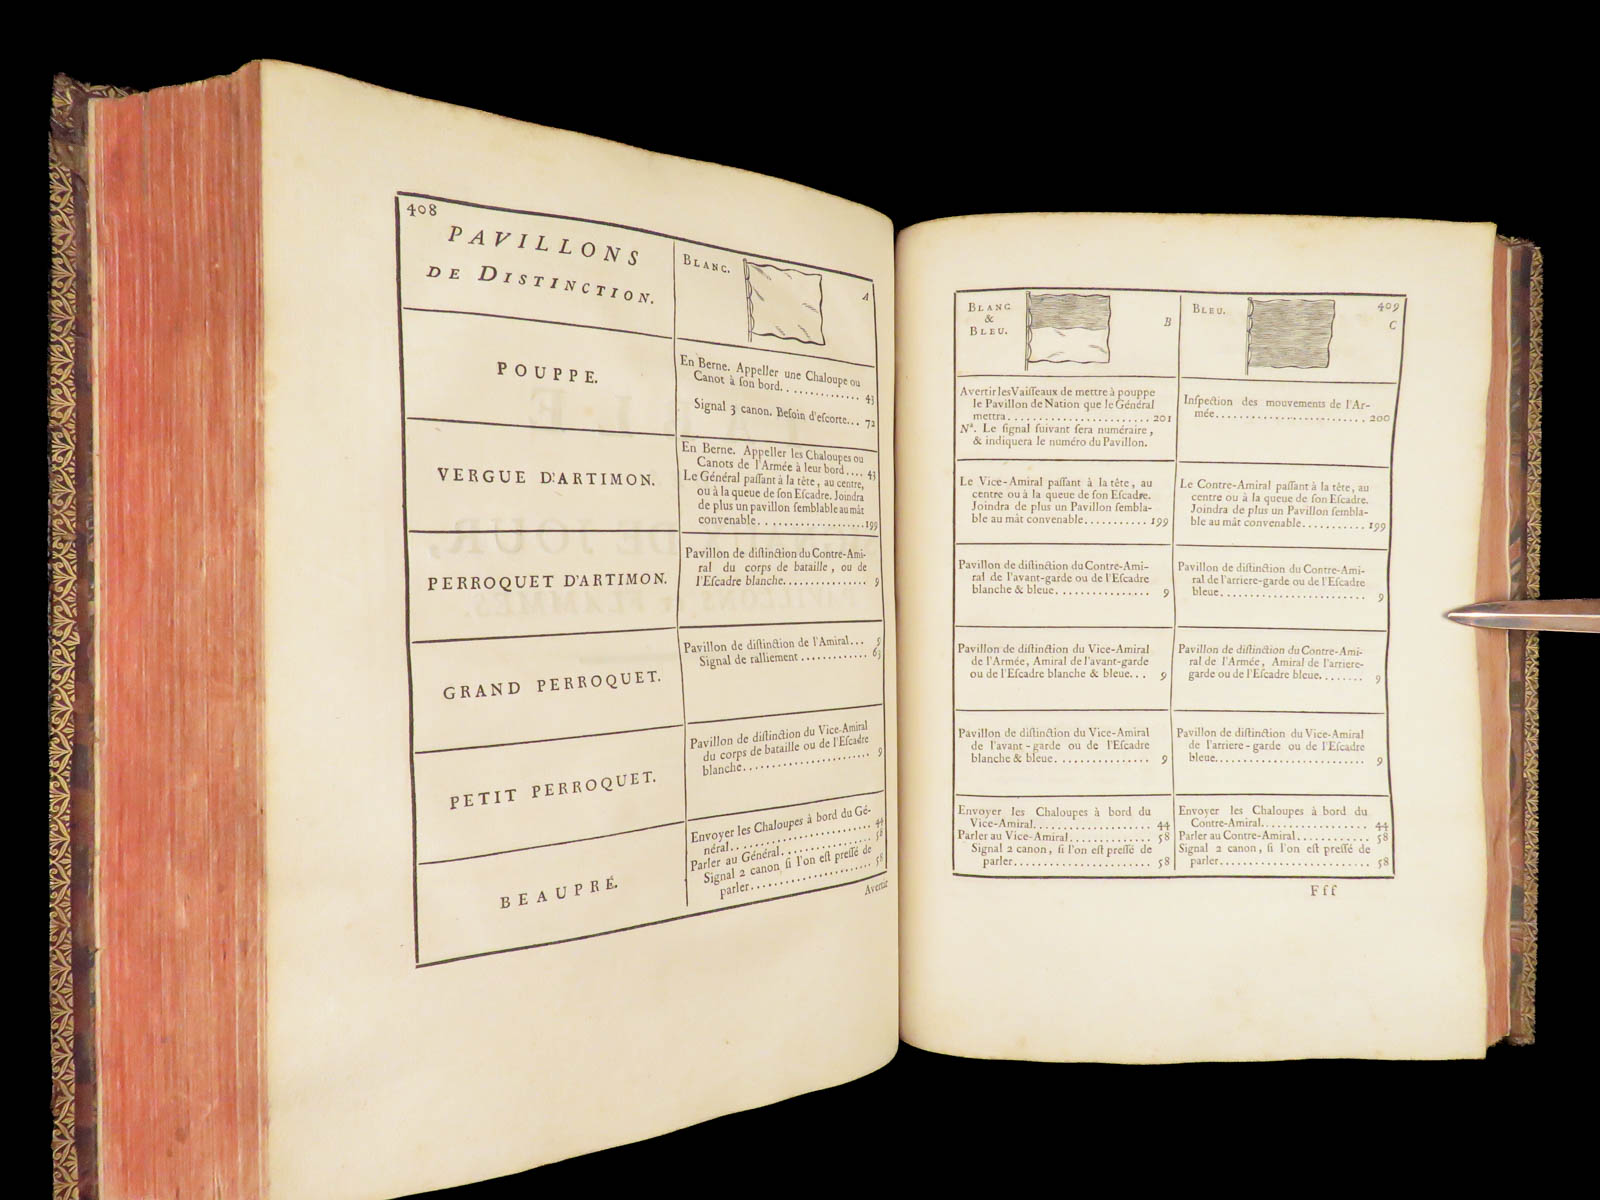 408
PAVILLONS
DE DISTINCTION.
BLANC.
A
POUPPE.
En Berne. Appeller une Chaloupe ou
Canot à ſon bord. . . . . . . . . . . . . . 43
Signal 3 canon. Beſoin d'eſcorte. . . 72
VERGUE D'ARTIMON.
En Berne. Appeller les Chaloupes ou
Canots de l'Armée à leur bord . . . . 43
Le Général paſſant à la tête, au centre,
ou à la queue de ſon Eſcadre. Joindra
de plus un pavillon ſemblable au mât
convenable. . . . . . . . . . . . . . . . . . 199
PERROQUET D'ARTIMON.
Pavillon de diſtinction du Contre-Ami-
ral du corps de bataille, ou de
l'Eſcadre blanche. . . . . . . . . . . . . . . 9
GRAND PERROQUET.
Pavillon de diſtinction de l'Amiral. . . 9
Signal de ralliement . . . . . . . . . . . . 63
PETIT PERROQUET.
Pavillon de diſtinction du Vice-Amiral
du corps de bataille ou de l'Eſcadre
blanche. . . . . . . . . . . . . . . . . . . . . . 9
BEAUPRÉ.
Envoyer les Chaloupes à bord du Gé-
néral. . . . . . . . . . . . . . . . . . . . . . 44
Parler au Général. . . . . . . . . . . . . . 58
Signal 2 canon, ſi l'on eſt preſſé de
parler. . . . . . . . . . . . . . . . . . . . . 58
Avertir
BLANC
&
BLEU.
B
BLEU.
409
C
Avertir les Vaiſſeaux de mettre à pouppe
le Pavillon de Nation que le Général
mettra. . . . . . . . . . . . . . . . . . . . . . 201
Nª. Le ſignal ſuivant ſera numéraire,
& indiquera le numéro du Pavillon.
Inſpection des mouvements de l'Ar-
mée. . . . . . . . . . . . . . . . . . . . . . . 200
Le Vice-Amiral paſſant à la tête, au
centre ou à la queue de ſon Eſcadre.
Joindra de plus un Pavillon ſembla-
ble au mât convenable. . . . . . . . . . . 199
Le Contre-Amiral paſſant à la tête, au
centre ou à la queue de ſon Eſcadre.
Joindra de plus un Pavillon ſembla-
ble au mât convenable. . . . . . . . . . . 199
Pavillon de diſtinction du Contre-Ami-
ral de l'avant-garde ou de l'Eſcadre
blanche & bleue. . . . . . . . . . . . . . . . 9
Pavillon de diſtinction du Contre-Ami-
ral de l'arriere-garde ou de l'Eſcadre
bleue. . . . . . . . . . . . . . . . . . . . . . . 9
Pavillon de diſtinction du Vice-Amiral
de l'Armée, Amiral de l'avant-garde
ou de l'Eſcadre blanche & bleue. . . 9
Pavillon de diſtinction du Contre-Ami-
ral de l'Armée, Amiral de l'arriere-
garde ou de l'Eſcadre bleue. . . . . . . . 9
Pavillon de diſtinction du Vice-Amiral
de l'avant-garde ou de l'Eſcadre
blanche & bleue. . . . . . . . . . . . . . . . 9
Pavillon de diſtinction du Vice-Amiral
de l'arriere-garde ou de l'Eſcadre
bleue. . . . . . . . . . . . . . . . . . . . . . . . 9
Envoyer les Chaloupes à bord du
Vice-Amiral. . . . . . . . . . . . . . . . . . 44
Parler au Vice-Amiral. . . . . . . . . . . . . 58
Signal 2 canon, ſi l'on eſt preſſé de
parler. . . . . . . . . . . . . . . . . . . . . . 58
Envoyer les Chaloupes à bord du
Contre-Amiral. . . . . . . . . . . . . . . . 44
Parler au Contre-Amiral. . . . . . . . . . . 58
Signal 2 canon, ſi l'on eſt preſſé de
parler. . . . . . . . . . . . . . . . . . . . . . 58
Fff